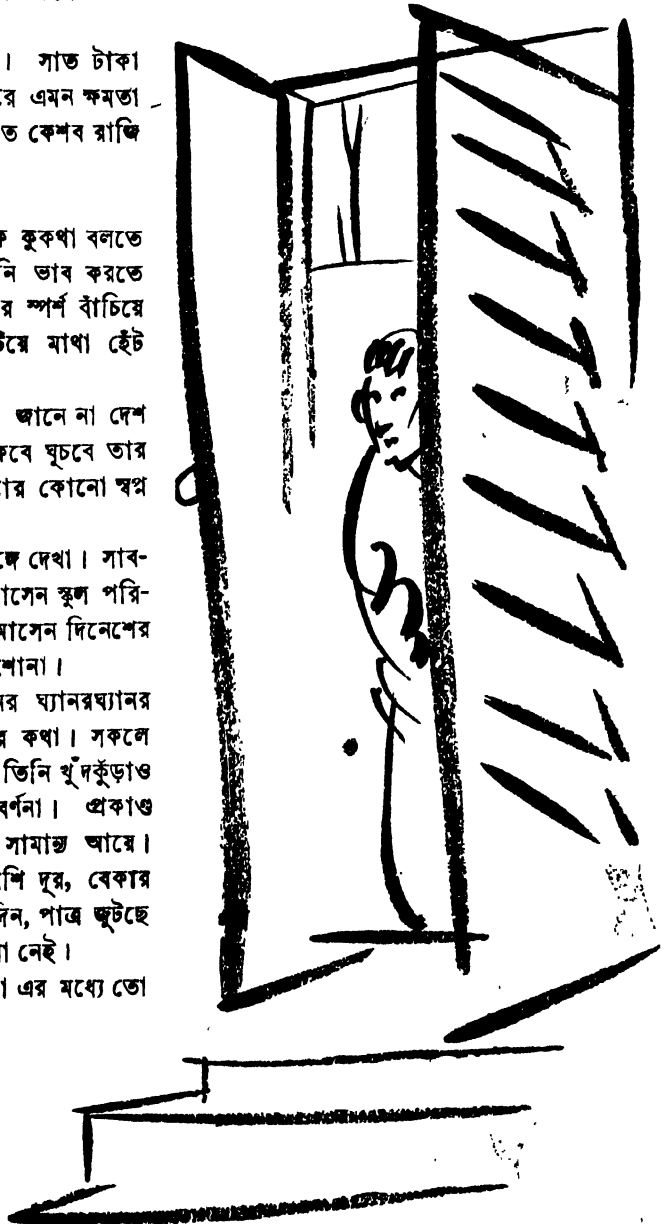 । সাত টাকা
রে এমন ক্ষমতা
ত কেশব রাজি
ক কুকথা বলতে
নি ভাব করতে
র স্পর্শ বাঁচিয়ে
মাথা হেঁট
জানে না দেশ
কবে ঘুচবে তার
কোনো স্বপ্ন
দেখা। সাব-
স্কুল পরি-
আসেন দিনেশের
শোনা।
ঘ্যানরঘ্যানর
র কথা। সকলে
তিনি খুঁদকুঁড়াও
বর্ণনা। প্রকাণ্ড
সামান্য আয়ে।
শি দূর, বেকার
দিন, পাত্র জুটছে
নেই।
এর মধ্যে তো